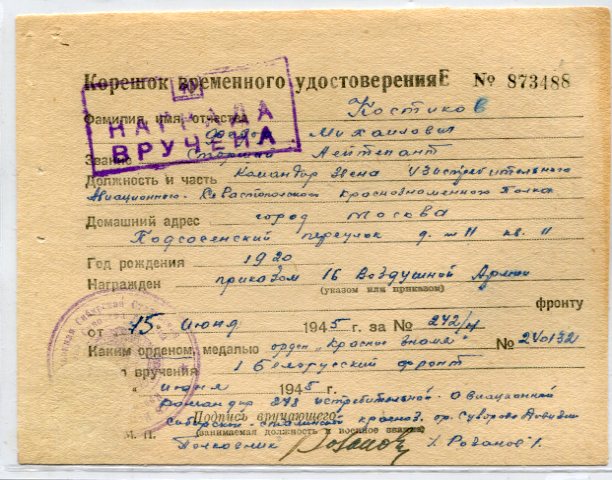 Корешок временного удостоверения Е № 873488
НАГРАДА
ВРУЧЕНА
Фамилия, имя, отчество Костиков
Михаилович
Звание Старший Лейтенант
Должность и часть Командир звена 43 истребительного
Авиационного Севастопольского краснознаменного Полка
Домашний адрес город Москва
Подсосенский переулок д. № 11 кв. 11
Год рождения 1920
Награжден приказом 16 Воздушной Армии
(указом или приказом)
фронту
от 15 июня 1945 г. за № 242/н
Каким орденом, медалью орден "Красное знамя" № 240132
вручения 1 Белорусский фронт
июня 1945 г.
Командир 278 истребительной Авиационной
Сибирско-сталинской краснозн. ор. Суворова Дивизии
Подпись вручающего
(занимаемая должность и военное звание)
М. П.
Полковник